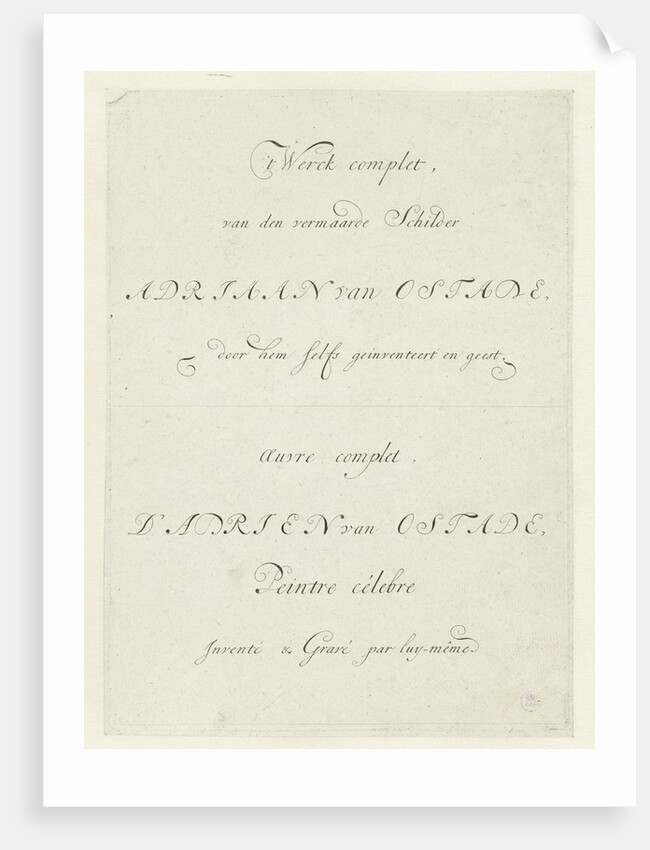 't Werck complet,
van den vermaarde Schilder
ADRIAAN van OSTADE,
door hem selfs geinventeert en geest.
œuvre complet,
D'ADRIEN van OSTADE,
Peintre célebre
Inventé & Gravé par luy-même.